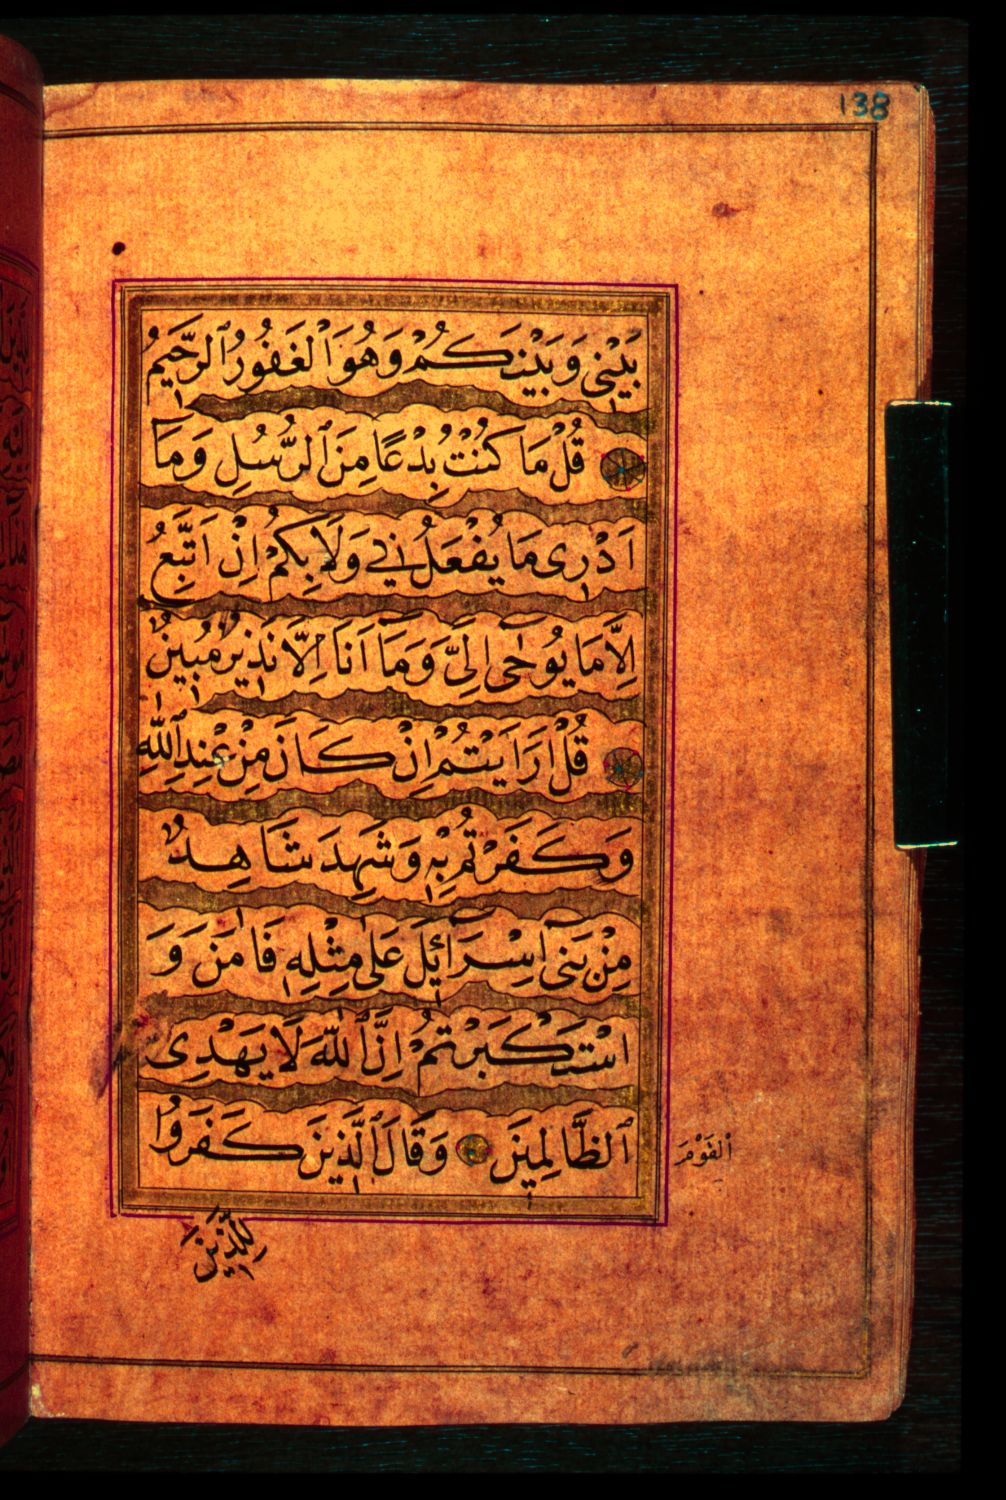 138
بَيْنِي وَبَيْنَكُمْ وَهُوَ الْغَفُورُ الرَّحِيمُ
قُلْ مَا كُنْتُ بِدْعًا مِنَ الرُّسُلِ وَمَا
اَدْرِى مَا يُفْعَلُ بِى وَلَا بِكُمْ اِنْ اَتَّبِعُ
اِلَّا مَا يُوحٰى اِلَىَّ وَمَا اَنَا اِلَّا نَذِيرٌ مُبِينٌ
قُلْ اَرَاَيْتُمْ اِنْ كَانَ مِنْ عِنْدِ اللّٰهِ
وَكَفَرْتُمْ بِهِ وَشَهِدَ شَاهِدٌ
مِنْ بَنِى اِسْرَآئِلَ عَلٰى مِثْلِهِ فَاٰمَنَ وَ
اسْتَكْبَرْتُمْ اِنَّ اللّٰهَ لَا يَهْدِى
الظَّالِمِينَ وَقَالَ الَّذِينَ كَفَرُوا
الْقَوْمَ
لِلَّذِينَ